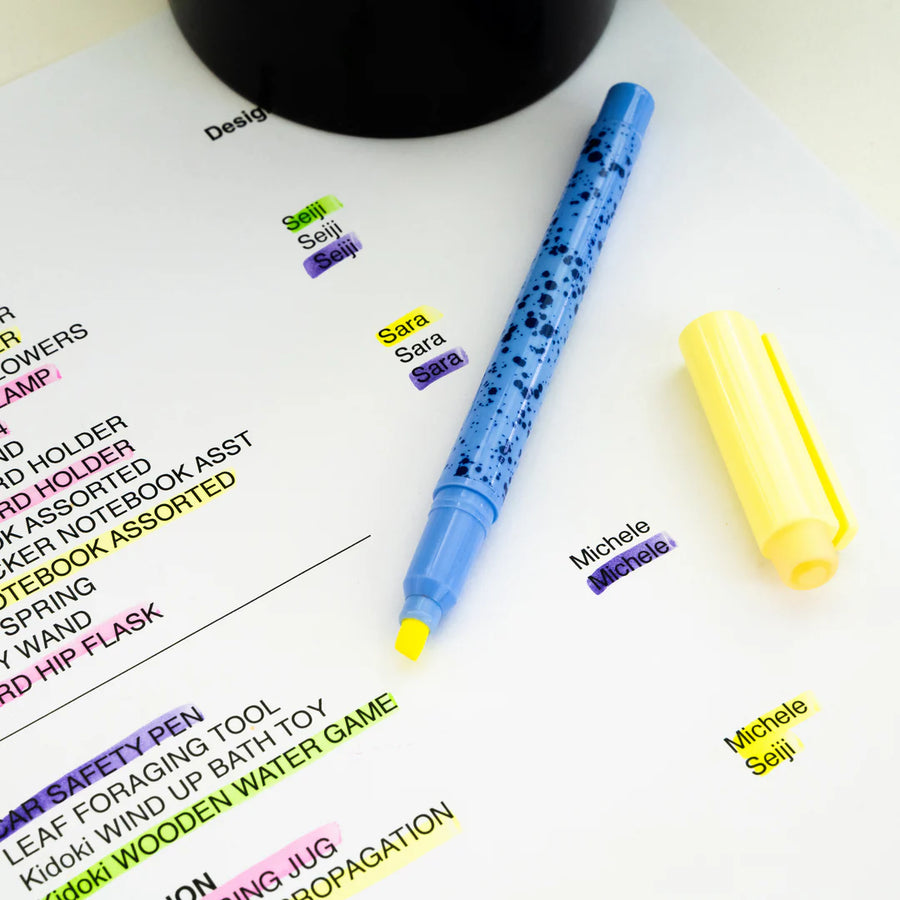 Design
Seiji
Seiji
Seiji
Sara
Sara
Sara
LOWERS
LAMP
RD HOLDER
RD HOLDER
OK ASSORTED
CKER NOTEBOOK ASST
OTEBOOK ASSORTED
SPRING
Y WAND
RD HIP FLASK
Michele
Michele
CAR SAFETY PEN
LEAF FORAGING TOOL
Kidoki WIND UP BATH TOY
Kidoki WOODEN WATER GAME
Michele
Seiji
ION
ING JUG
ROPAGATION